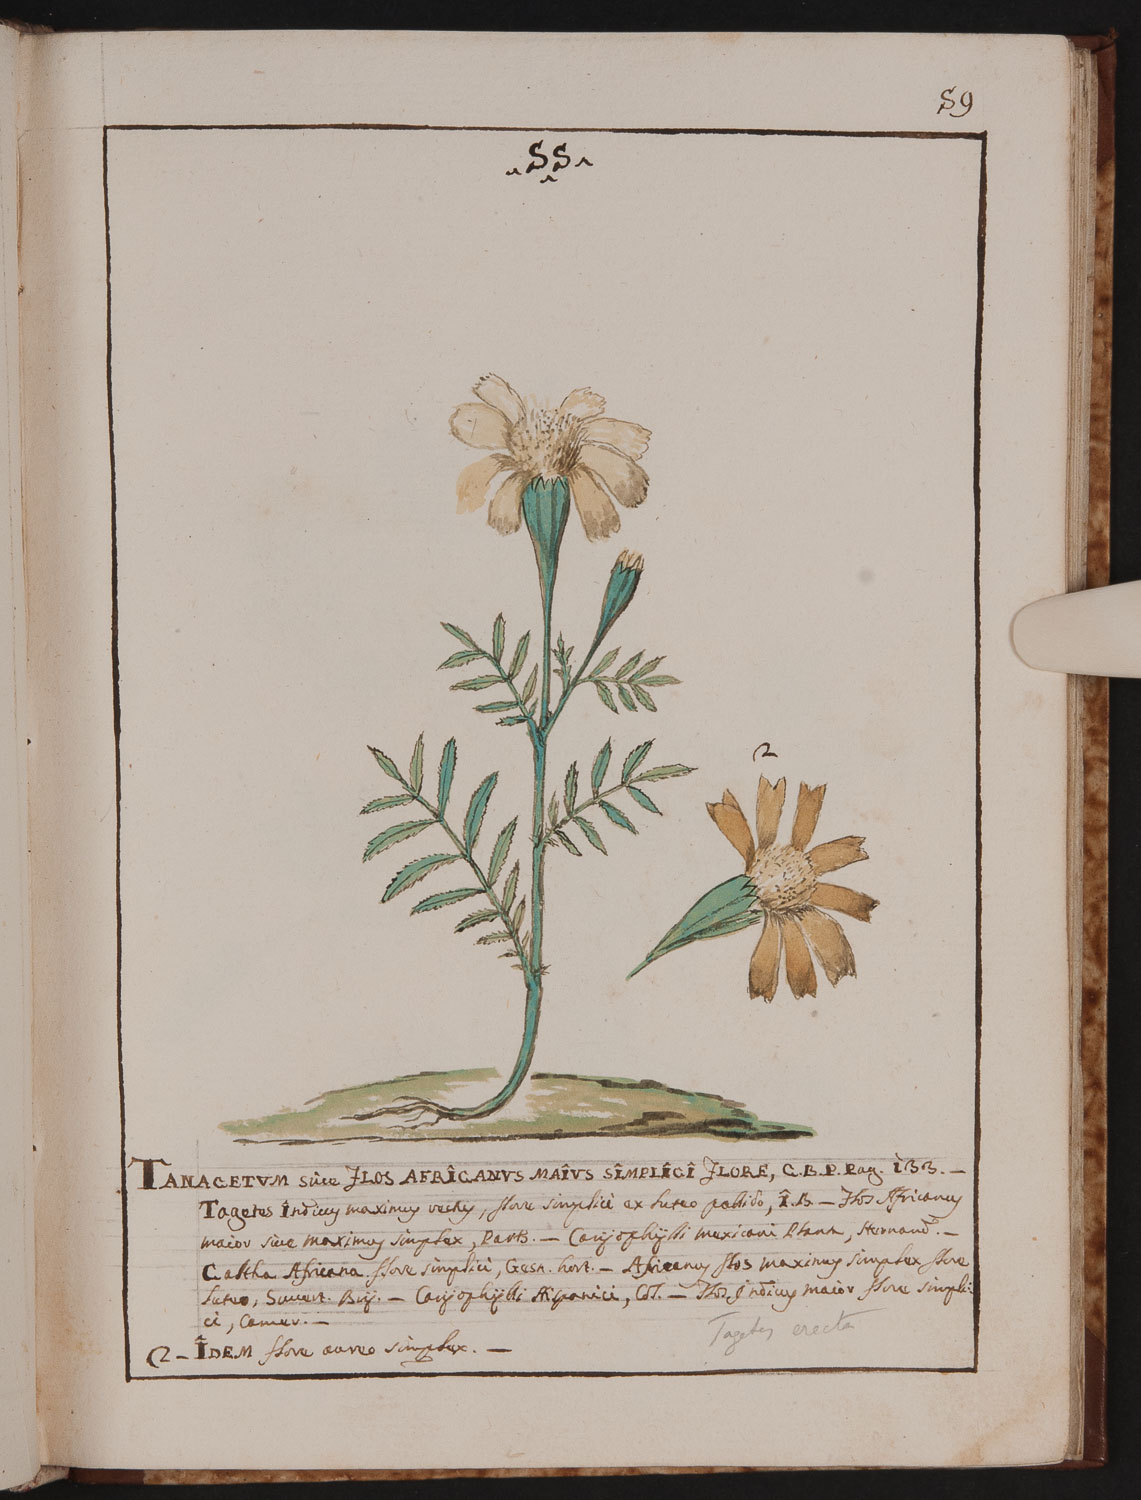 59
55
2
TANACETVM siue FLOS AFRICANVS MAIVS SIMPLICI FLORE, C.B.P. Pag. 133. —
Tagetes Indicus maximus rectus, flore simplici ex luteo pallido, I.B — Flos Africanus
maior siue maximus simplex, ParB. — Caryophylli mexicani Planta, Hernand. —
Caltha Africana flore simplici, Gesn. hort. — Africanus flos maximus simplex flore
luteo, Suuert. — Caryophylli Hispanici, Col. — Flos Indicus maior flore simpli-
ci, Camer. —
Tagetes erecta
2 — IDEM flore aureo simplex. —